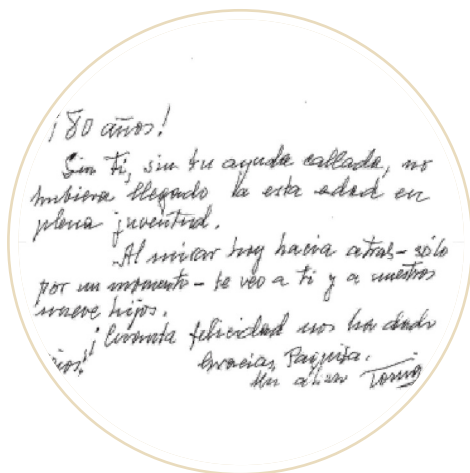 ¡80 años!
Sin ti, sin tu ayuda callada, no
hubiera llegado a esta edad en
plena juventud.
Al mirar hoy hacia atrás - sólo
por un momento - te veo a ti y a nuestros
nueve hijos.
¡Cuanta felicidad nos ha dado
Gracias, Paquita.
Un abrazo